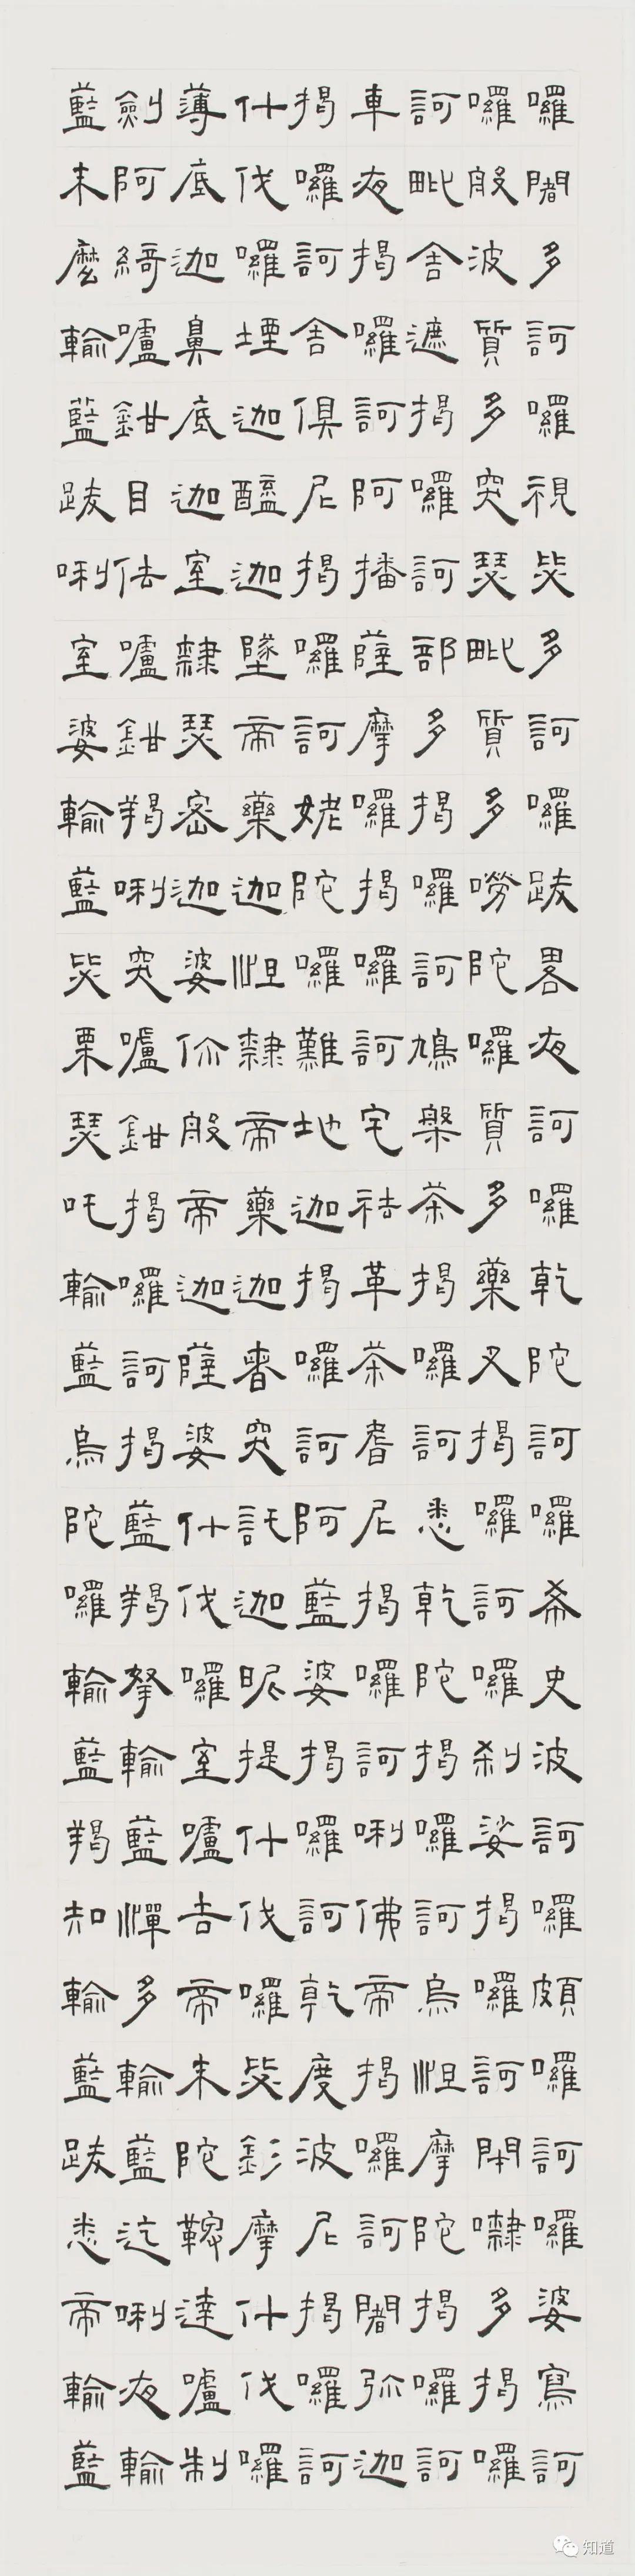 囉闍多訶囉視毖多訶囉跋畧夜訶囉乾陀訶囉布史波訶囉頗囉訶囉婆寫訶
囉般波質多突瑟毗質多嘮陀囉質多藥叉揭囉訶囉剎娑揭囉訶閉㘑多揭囉
訶毗舍遮揭囉訶部多揭囉訶鳩槃茶揭囉訶悉乾陀揭囉訶烏怛摩陀揭囉訶
車夜揭囉訶阿播薩摩囉揭囉訶宅袪革茶耆尼揭囉訶唎佛帝揭囉訶闍弥迦
揭囉訶舍俱尼揭囉訶姥陀囉難地迦揭囉訶阿藍婆揭囉訶乾度波尼揭囉訶
什伐囉堙迦醯迦墜帝藥迦怛隸帝藥迦者突託迦昵提什伐囉毖釤摩什伐囉
薄底迦鼻底迦室隸瑟密迦婆你般帝迦薩婆什伐囉室嚧吉帝末陀鞞達嚧制
劍阿綺嚧鉗目佉嚧鉗羯唎突嚧鉗揭囉訶揭藍羯拏輸藍憚多輸藍迄唎夜輸
藍末麼輸藍跋唎室婆輸藍毖栗瑟吒輸藍烏陀囉輸藍羯知輸藍跋悉帝輸藍
知道